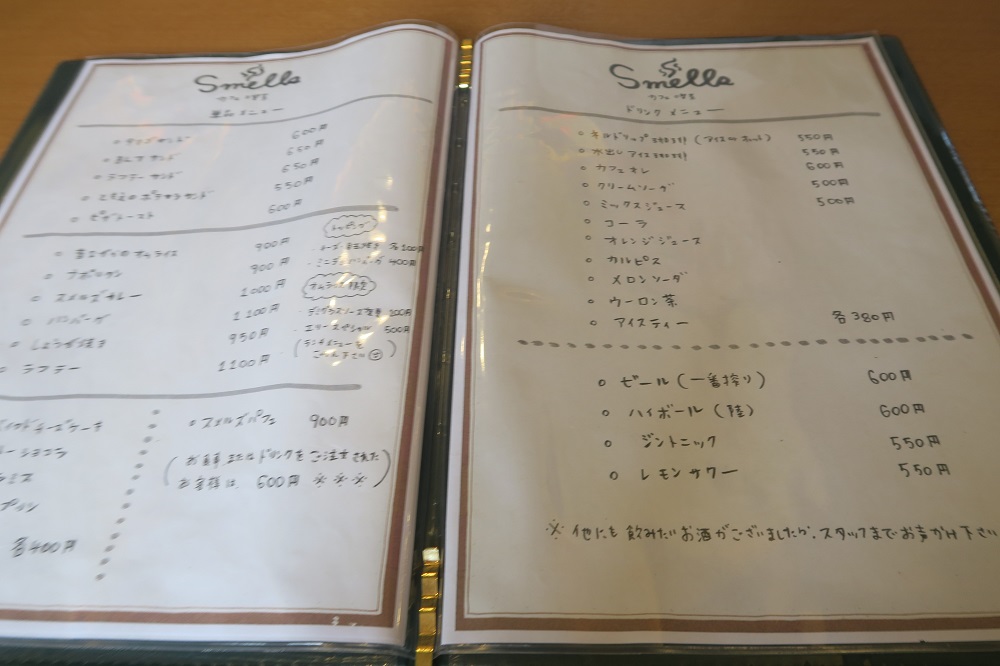 Smells
カフェ喫茶
単品メニュー
サンド 600円
サンド 650円
ラフテーサンド 650円
サンド 550円
ピザトースト 600円
トッピング
オムライス 900円
ナポリタン 900円
スメルズカレー 1000円
ハンバーグ 1100円
しょうが焼き 950円
ラフテー 1100円
各100円
400円
オムライス限定
デミグラスソース変更 200円
500円
チーズケーキ
ショコラ
ラミス
プリン
各400円
スメルズパフェ 900円
(お食事またはドリンクをご注文された
お客様は、600円 ※※※)
Smells
カフェ喫茶
ドリンクメニュー
(アイス or ホット) 550円
水出しアイス 550円
カフェオレ 600円
クリームソーダ 500円
ミックスジュース 500円
コーラ
オレンジジュース
カルピス
メロンソーダ
ウーロン茶
アイスティー 各380円
ビール(一番搾り) 600円
ハイボール(陸) 600円
ジントニック 550円
レモンサワー 550円
※他にも飲みたいお酒がございましたら、スタッフまでお声がけ下さい